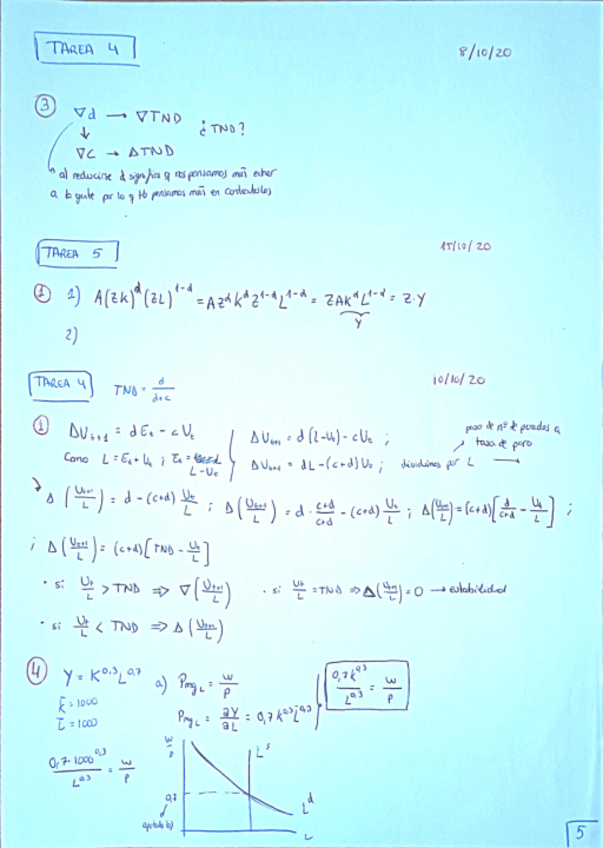 TAREA 4
8/10/20
③ ∇d → ∇TND ¿TND?
↓
∇C → ΔTND
al reducirse d significa q nos pensamos más echar
a la gente por lo q tb pensamos más en contratarlos
TAREA 5
15/10/20
① 1) A(ZK)^α (ZL)^1-α = AZ^α K^α Z^1-α L^1-α = ZAK^α L^1-α = Z·Y
Y
2)
TAREA 4 TND = d/(d+c)
10/10/20
① ΔU_t+1 = dE_t - cU_t
Como L = E_t + U_t ; E_t = L - U_t
ΔU_t+1 = d(L-U_t) - cU_t ;
ΔU_t+1 = dL - (c+d)U_t ; dividimos por L →
paso de nº de parados a
tasa de paro
Δ(U_t+1/L) = d - (c+d) U_t/L ; Δ(U_t+1/L) = d · (c+d)/(c+d) - (c+d) U_t/L ; Δ(U_t+1/L) = (c+d)[d/(c+d) - U_t/L] ;
; Δ(U_t+1/L) = (c+d)[TND - U_t/L]
· si U_t/L > TND ⇒ ∇(U_t+1/L) · si U_t/L = TND ⇒ Δ(U_t+1/L) = 0 → estabilidad
· si U_t/L < TND ⇒ Δ(U_t+1/L)
④ Y = K^0,3 L^0,7 a) Pmg_L = w/P
K̄ = 1000
L̄ = 1000
Pmg_L = ∂Y/∂L = 0,7 K^0,3 L^-0,3
0,7K^0,3/L^0,3 = w/P
0,7·1000^0,3/L^0,3 = w/P
w/P
L^s
0,7
apartado b)
L^d
L
5